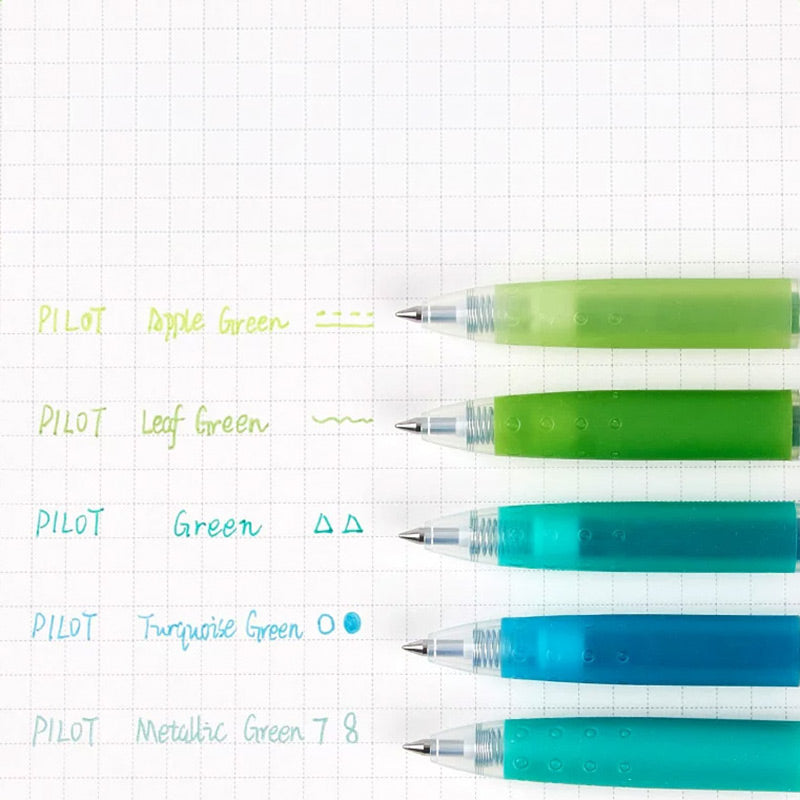 PILOT Apple Green
PILOT Leaf Green
PILOT Green
PILOT Turquoise Green
PILOT Metallic Green 7 8